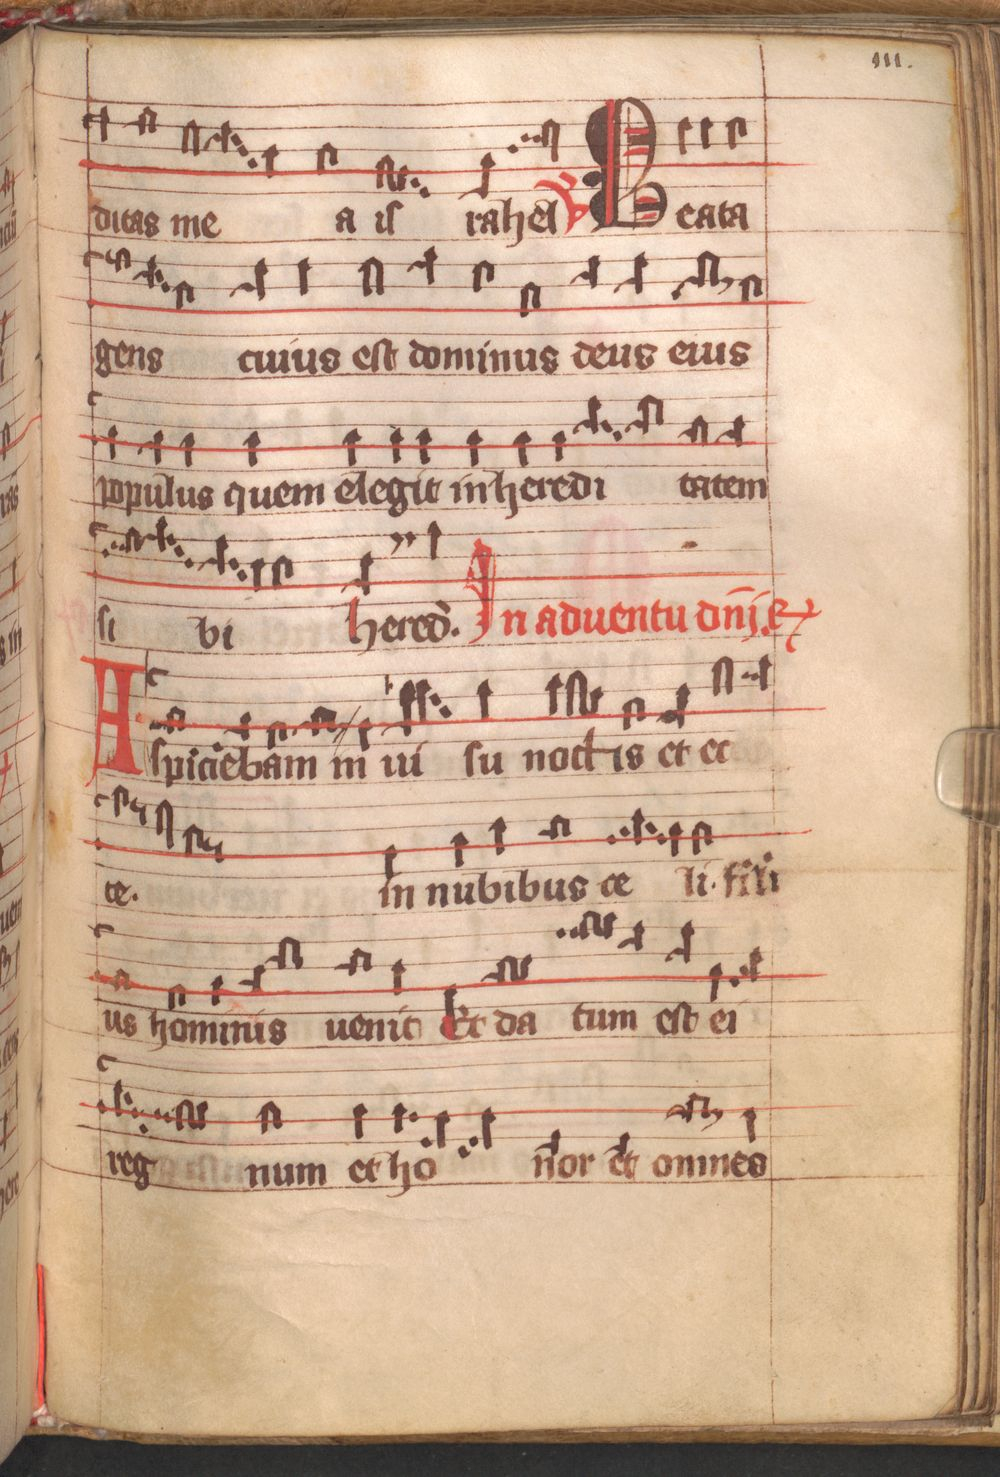 111.
ditas me a is rahel ℣ Beata
gens cuius est dominus deus eius
populus quem elegit in heredi tatem
si bi hered̄. In aduentu dn̄i. ℞
Aspiciebam in ui su noctis et ec
ce. in nubibus ce li. fili
us hominis uenit Et da tum est ei
reg num et ho nor et omnes